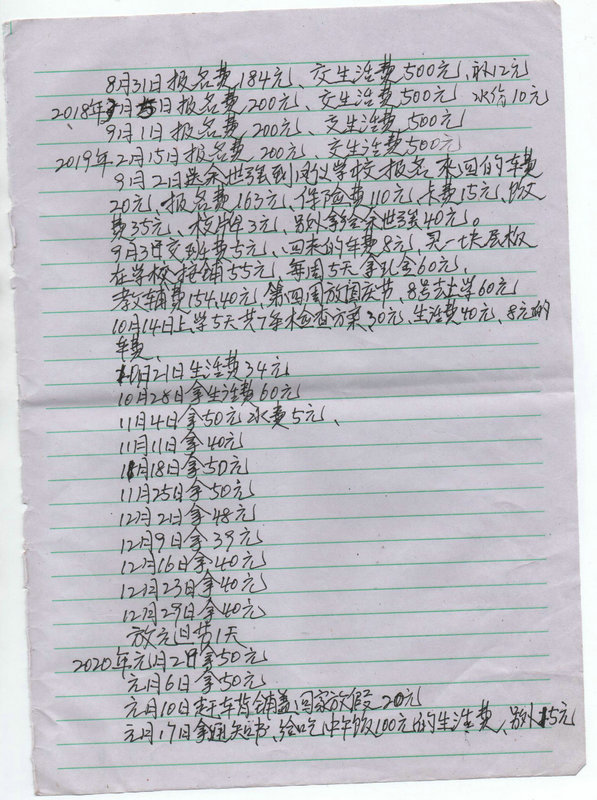 8月31日报名费184元、交生活费500元、补12元
2018年3月5日报名费200元、交生活费500元 水价10元
9月1日报名费200元、交生活费500元
2019年2月15日报名费200元、交生活费500元
9月2日送余世强到凤仪学校报名来回的车费
20元、报名费163元、保险费110元、卡费15元、
费35元、校牌3元、另外拿给余世强40元。
9月3日交到班费5元、回来的车费8元、买一块层板
在学校打铺55元、每周5天拿礼金60元、
教辅费154.40元、第四周放国庆节、8号去上学60元
10月14日上学5天共7年检查方案30元、生活费40元、8元的
车费、
10月21日生活费34元
10月28日拿生活费60元
11月4日拿50元水费5元、
11月11日拿40元
11月18日拿50元
11月25日拿50元
12月2日拿48元
12月9日拿39元
12月16日拿40元
12月23日拿40元
12月29日拿40元
放元旦节1天
2020年元月2日拿50元
元月6日拿50元
元月10日车背铺盖回家放假20元
元月17日拿通知书、给吃中午饭100元的生活费、另外15元